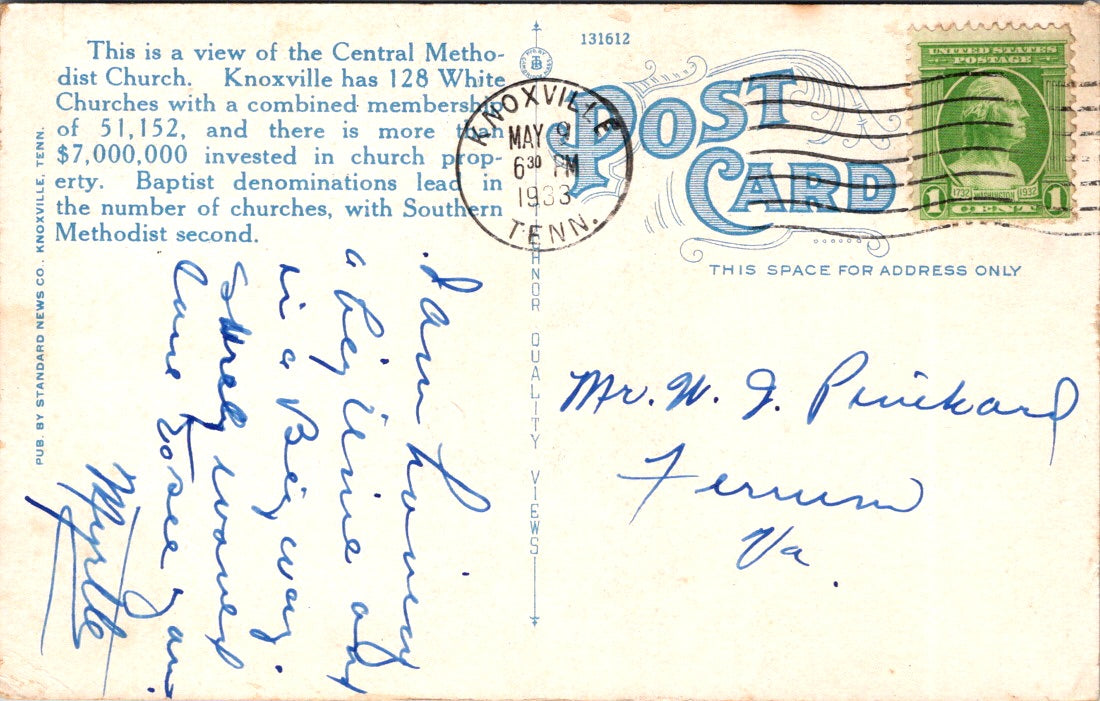 This is a view of the Central Metho-
dist Church. Knoxville has 128 White
Churches with a combined membership
of 51,152, and there is more than
$7,000,000 invested in church prop-
erty. Baptist denominations lead in
the number of churches, with Southern
Methodist second.
PUB. BY STANDARD NEWS CO., KNOXVILLE, TENN.
I am having
a big time and
in a Big way.
Surely would
love to see you
Myrtle
131612
HNOR QUALITY VIEWS
POST
CARD
KNOXVILLE
MAY 9
6 30 PM
1933
TENN.
UNITED STATES
POSTAGE
1732 WASHINGTON 1932
1 CENT 1
THIS SPACE FOR ADDRESS ONLY
Mr. W. J. Pinckard
Ferrum
Va.